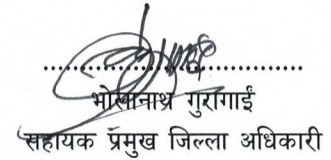 भोलानाथ गुरागाईं
सहायक प्रमुख जिल्ला अधिकारी